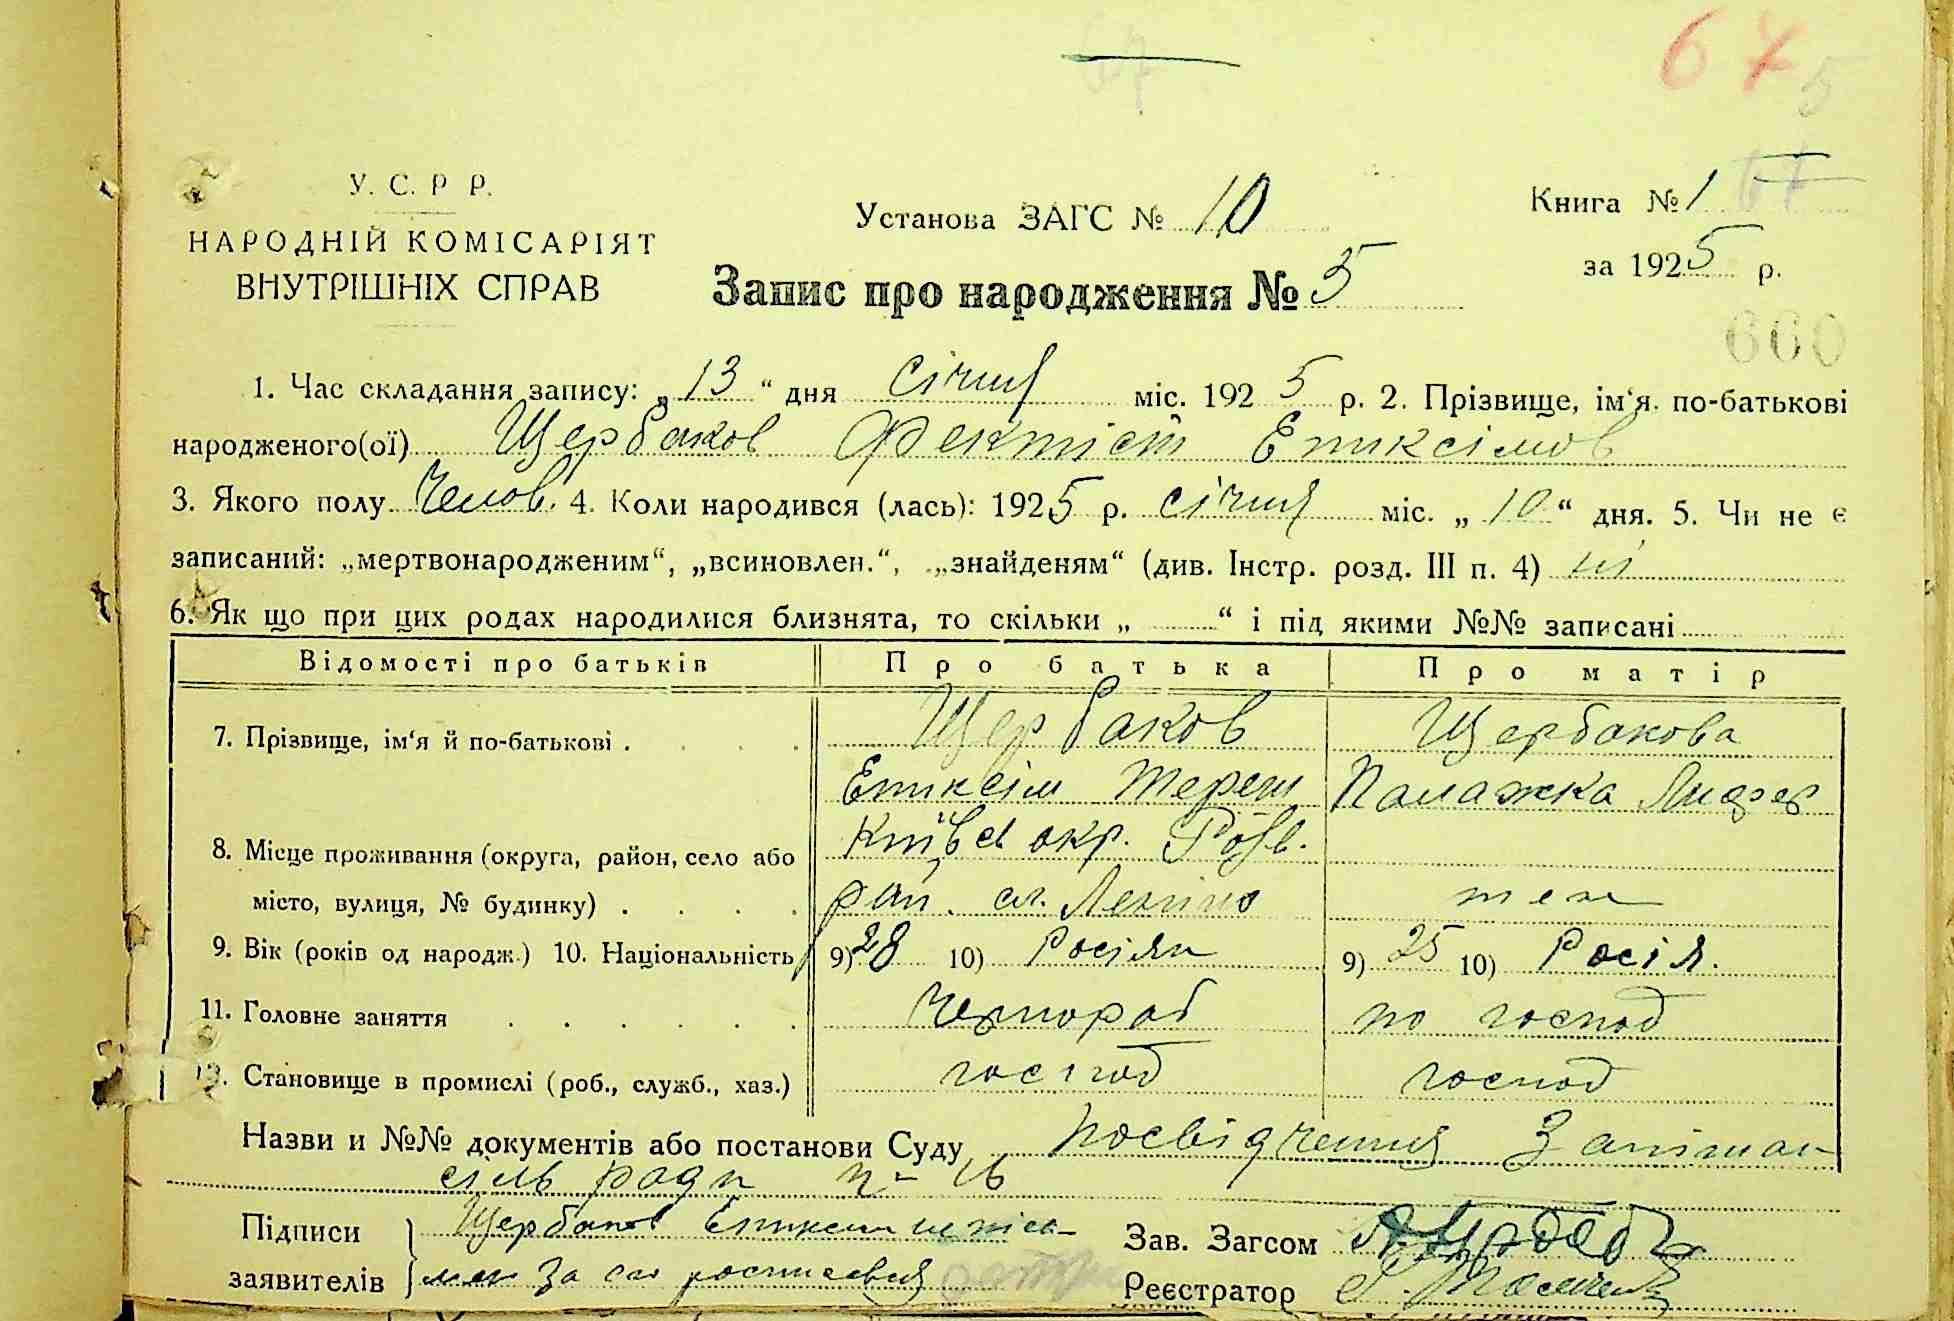 67
5
У. С. Р Р.
НАРОДНІЙ КОМІСАРІЯТ
ВНУТРІШНІХ СПРАВ
Установа ЗАГС № 10
Книга № 1
за 1925 р.
Запис про народження № 5
660
1. Час складання запису: „13“ дня січня міс. 1925 р. 2. Прізвище, ім‘я. по-батькові
народженого(ої) Щербаков Фектіст Епиксімов
3. Якого полу Челов. 4. Коли народився (лась): 1925 р. січня міс. „10“ дня. 5. Чи не є
записаний: „мертвонародженим“, „всиновлен.“, „знайденям“ (див. Інстр. розд. III п. 4) ні
6. Як що при цих родах народилися близнята, то скільки „ “ і під якими №№ записані
Відомості про батьків Про батька Про матір
7. Прізвище, ім‘я й по-батькові . . . . Щербаков Щербакова
Епиксім Терен Палажка
8. Місце проживання (округа, район, село або Київсь окр. Розв.
місто, вулиця, № будинку) . . . . рай. сл. Леніно теж
9. Вік (років од народж.) 10. Національність 9) 28 10) Росіян 9) 25 10) Росія.
11. Головне заняття . . . . . . Чернороб по господ
12. Становище в промислі (роб., служб., хаз.) господ господ
Назви и №№ документів або постанови Суду посвідчення
сільради № 16
Підписи заявителів Щербаков Епиксим
за
Зав. Загсом
Реєстратор